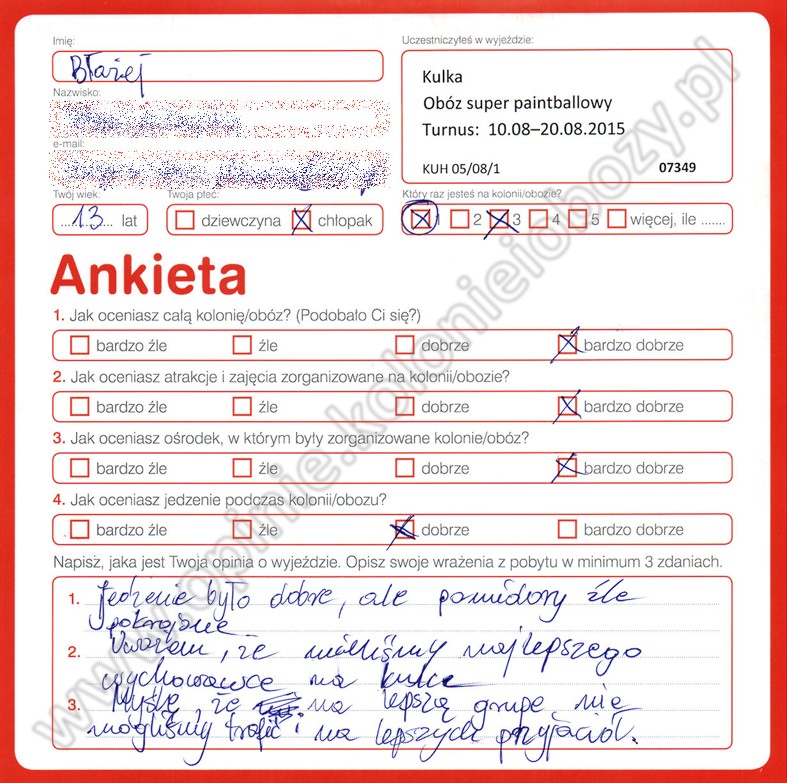 Imię:
Błażej
Uczestniczyłeś w wyjeździe:
Kulka
Obóz super paintballowy
Turnus: 10.08–20.08.2015
KUH 05/08/1 07349
Nazwisko:
e-mail:
Twój wiek:
13 lat
Twoja płeć:
dziewczyna chłopak
Który raz jesteś na kolonii/obozie?
1 2 3 4 5 więcej, ile .......
Ankieta
1. Jak oceniasz całą kolonię/obóz? (Podobało Ci się?)
bardzo źle źle dobrze bardzo dobrze
2. Jak oceniasz atrakcje i zajęcia zorganizowane na kolonii/obozie?
bardzo źle źle dobrze bardzo dobrze
3. Jak oceniasz ośrodek, w którym były zorganizowane kolonie/obóz?
bardzo źle źle dobrze bardzo dobrze
4. Jak oceniasz jedzenie podczas kolonii/obozu?
bardzo źle źle dobrze bardzo dobrze
Napisz, jaka jest Twoja opinia o wyjeździe. Opisz swoje wrażenia z pobytu w minimum 3 zdaniach.
1. Jedzenie było dobre, ale pomidory źle
pokrojone
2. Uważam, że mieliśmy najlepszego
wychowawce na kulce
3. Myślę, że na lepszą grupe nie
mogliśmy trafić i na lepszych przyjaciół.
www.opinie.kolonieiobozy.pl